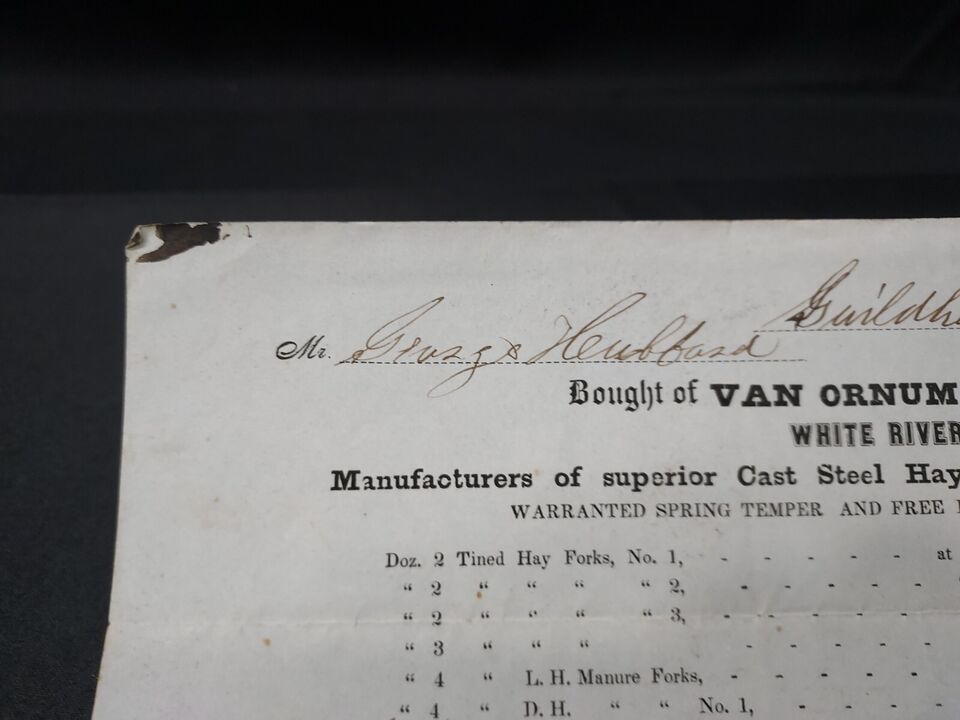 Guildh
Mr. George Hubbard
Bought of VAN ORNUM
WHITE RIVER
Manufacturers of superior Cast Steel Hay
WARRANTED SPRING TEMPER AND FREE
Doz. 2 Tined Hay Forks, No. 1, - - - - - at
“ 2 “ “ “ “ 2, - - - - -
“ 2 “ “ “ “ 3, - - - - -
“ 3 “ “ “ - - - -
“ 4 “ L. H. Manure Forks, - - - - -
“ 4 “ D. H. “ “ No. 1, - - - -